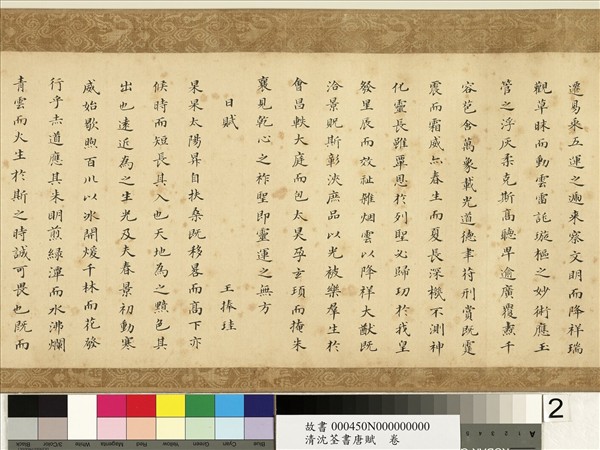 遷易乘五運之遞来察文明而降祥瑞
觀草昧而動雲雷託璇樞之妙術應玉
管之浮灰柔克斯高聰卑逾廣覆燾千
容苞含萬象載光道德聿符刑賞既霆
震而霜威亦春生而夏長深機不測神
化靈長雖覃思於列聖必歸功於我皇
發里辰而效祉雜烟雲以降祥大猷既
洽景貺斯彰浹庶品以光被樂群生於
會昌軼大庭而包太昊孕玄頊而掩朱
襄見乾心之祚聖即靈運之無方
日賦 王捧珪
杲杲太陽昇自扶桑既移晷而高下亦
候時而短長其入也天地為之黯色其
出也遠近為之生光及夫春景初動寒
威始歇煦百川以冰開煖千林而花發
行乎赤道應其朱明煎綠潭而水沸爛
青雲而火生於斯之時誠可畏也既而
故書 000450N000000000
清沈荃書唐賦 卷
2
Black
3/Color
White
Magenta
Red
Yellow
Green
Cyan
Blue
A